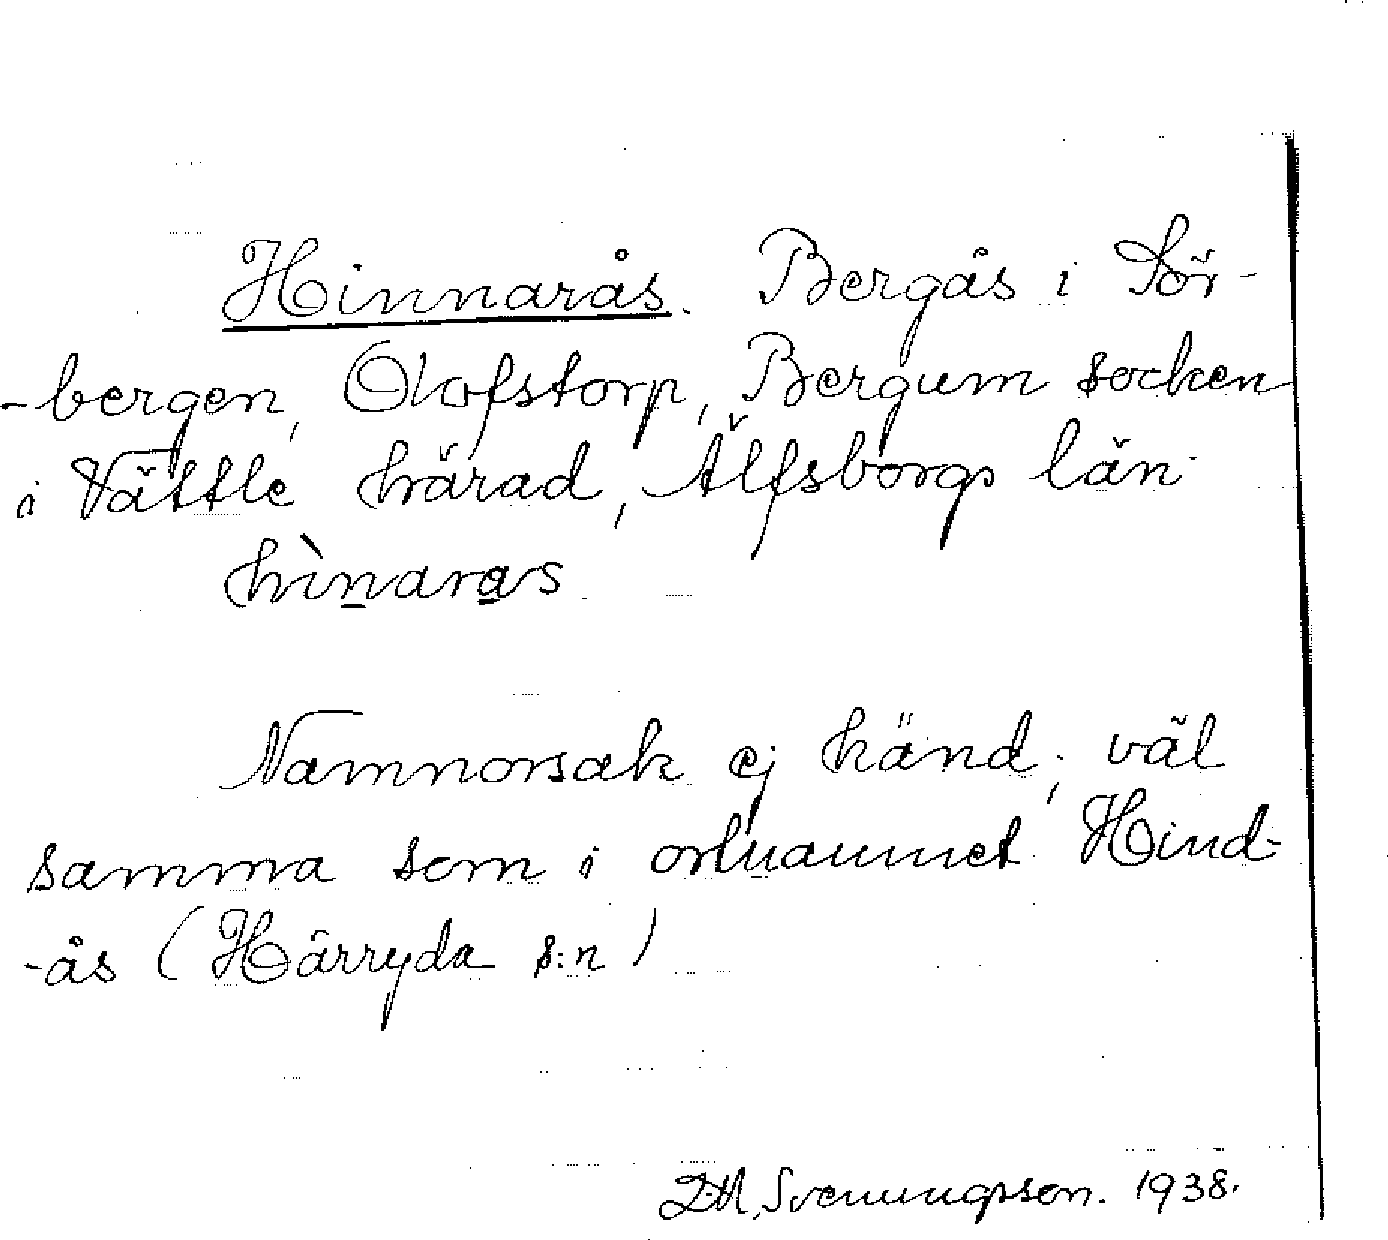 Hinnarås. Bergås i Sör-
-bergen, Olofstorp, Bergum socken
i Vättle härad, Älfsborgs län.
hìnaras.
Namnorsak ej känd; väl
samma som i ortnamnet Hind-
-ås (Härryda s:n)
D.H. Svenungsson. 1938.